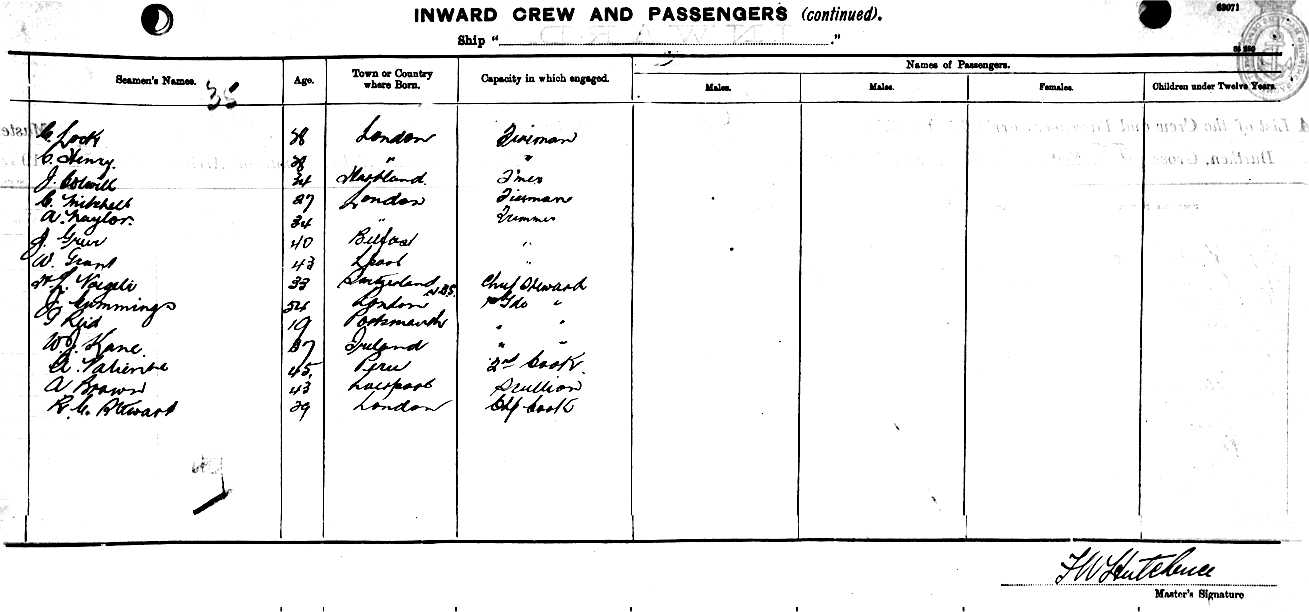 INWARD CREW AND PASSENGERS (continued).
63071
Ship " ."
Seamen's Names. Age. Town or Country where Born. Capacity in which engaged. Names of Passengers.
Males. Males. Females. Children under Twelve Years.
38
C. Lock 38 London Fireman
C. Henry. 38 " "
J. Colwill 34
C. Mitchell 27 London Fireman
A. Naylor. 34 " Trimmer
J. Greer 40 Belfast "
W. Grant 43 Lpool "
33 Switzerland Chief Steward
J. Cummings 54 London "
Reid 19 Portsmouth " "
W. J. Kane. 37 Ireland " "
A. Patience 45. Peru 2nd Cook
A Brown 43 Liverpool Scullion
R. C. Stewart 39 London Chf Cook
F W Hutchence
Master's Signature